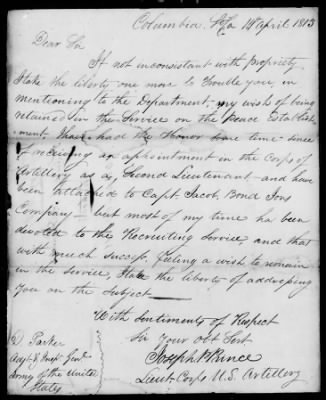 Columbia. S.Ca 14th April 1815
Dear Sir
If not inconsistant with Propriety.
I take the liberty one more to trouble you, in
mentioning to the Department, my wish of being
retained in the Service on the Peace Establish-
ment. I have had the Honor some time since
of receiving an appointment in the Corps of
Artillery as a, Second Lieutenant and have
been attached to Capt. Jacob. Bond Ions
Company but most of my time has been
devoted to the Recruiting Service, and that
with much success. feeling a wish to remain
in the Service, I take the liberty of addressing
You on the Subject
With Sentiments of Respect
Sir Your Obt Sert
Joseph W Prince
Lieut. Corps U.S. Artillery
D Parker
Adjt & Inspr Genl
Army of the United
States